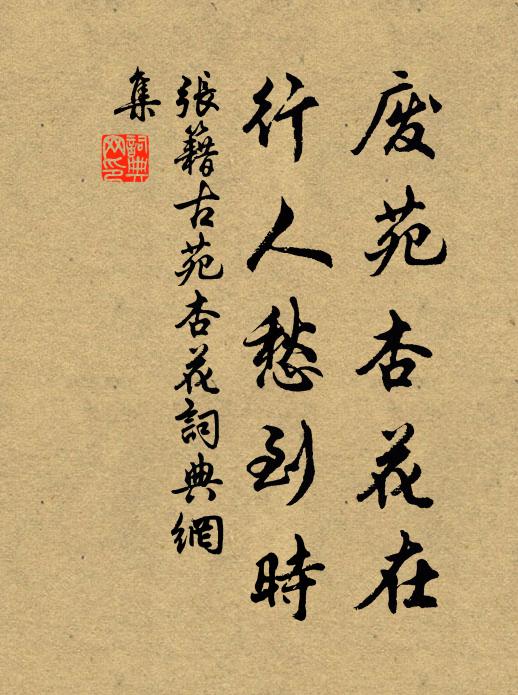 废苑杏花在
行人愁到時
張籍古苑杏花詞典網
集
詞典
网印